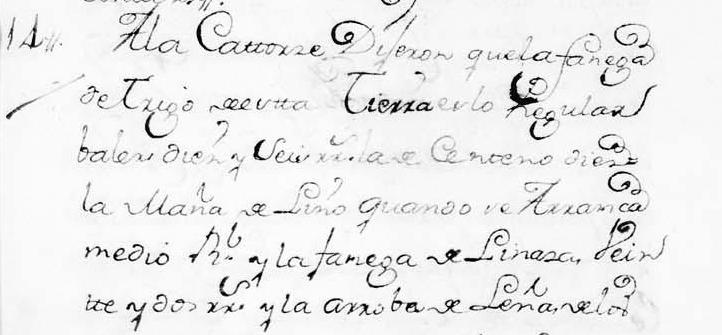 14 A la Cattorze Dijeron que la fanega
de Trigo de esta Tierra es lo Regular
baler diez y Seis rrs. la de Centeno diez
la Maña de Lino quando se Arranca
medio Rl. y la fanega de Linaza, Vein
tte y dos rrs. y la arroba de Leña, de los